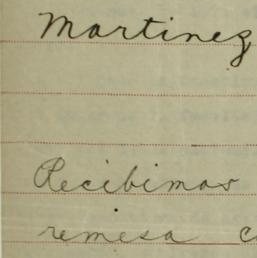 Martinez
Recibimos
remesa c